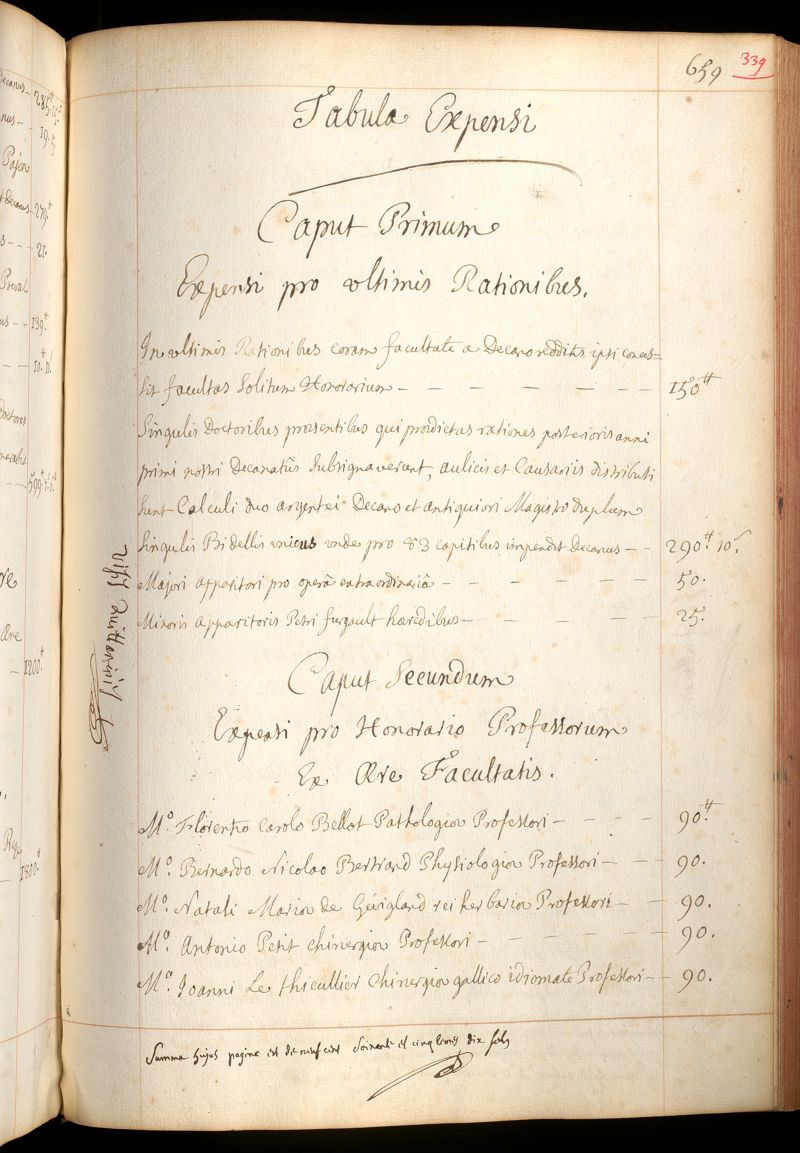 659 339
Tabula Expensi
Caput Primum
Expensi pro ultimis Rationibus.
In ultimis Rationibus coram facultate a Decano redditis ipsi conces=
sit facultas solitum Honorarium — — — — — — — 150tt
Singulis Doctoribus præsentibus qui prædictas rationes posterioris anni
primi nostri Decanatûs subsignaverunt, aulicis et Causariis distributi
sunt Calculi duo argentei Decano et antiquiori Magistro duplum
singulis Bidellis unicus unde pro 83 capitibus impendit Decanus — — 290tt 10s
Majori apparitori pro operâ extraordinariâ — — — — — — 50.
Minoris apparitoris Petri furgault hæredibus — — — — — 25.
Caput Secundum
Expensi pro Honorario Professorum
Ex Ære Facultatis.
Mo. Florentio Carolo Bellot Pathologiæ Professori — — — — 90.tt
Mo. Bernardo Nicolao Bertrand Physiologiæ Professori — — — 90.
Mo. Natali Mariæ de Gevigland rei herbariæ Professori — — 90.
Mo. Antonio Petit chirurgiæ Professori — — — — — 90.
Mo. Joanni Le Thieullier Chirurgiæ gallico idiomate Professori — — 90.
Summa hujus paginæ est de neuf cent soixante et cinq livres dix sols
Decanus
599tt
1200tt
1800tt